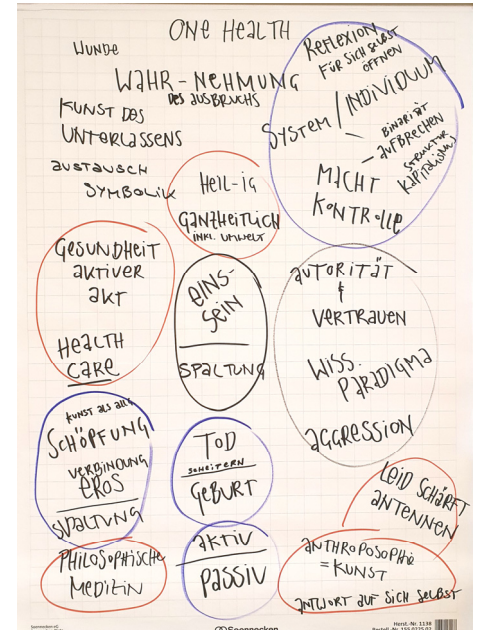 ONE HEALTH
WUNDE
WAHR-NEHMUNG
DES AUSBRUCHS
KUNST DES
UNTERLASSENS
AUSTAUSCH
SYMBOLIK
REFLEXION
FÜR SICH SELBST
ÖFFNEN
SYSTEM / INDIVIDUUM
BINARITÄT
- AUFBRECHEN
STRUKTUR
KAPITALISMUS
MACHT
KONTROLLE
HEIL-IG
GANZHEITLICH
INKL. UMWELT
GESUNDHEIT
AKTIVER
AKT
HEALTH
CARE
EINS-
SEIN
SPALTUNG
AUTORITÄT
&
VERTRAUEN
WISS.
PARADIGMA
AGGRESSION
KUNST ALS ALLG.
SCHÖPFUNG
VERBINDUNG
EROS
SPALTUNG
TOD
SCHEITERN
GEBURT
AKTIV
PASSIV
LEID SCHÄRFT
ANTENNEN
PHILOSOPHISCHE
MEDIZIN
ANTHROPOSOPHIE
= KUNST
ANTWORT AUF SICH SELBST
Soennecken eG
Soennecken
Herst.-Nr. 1138